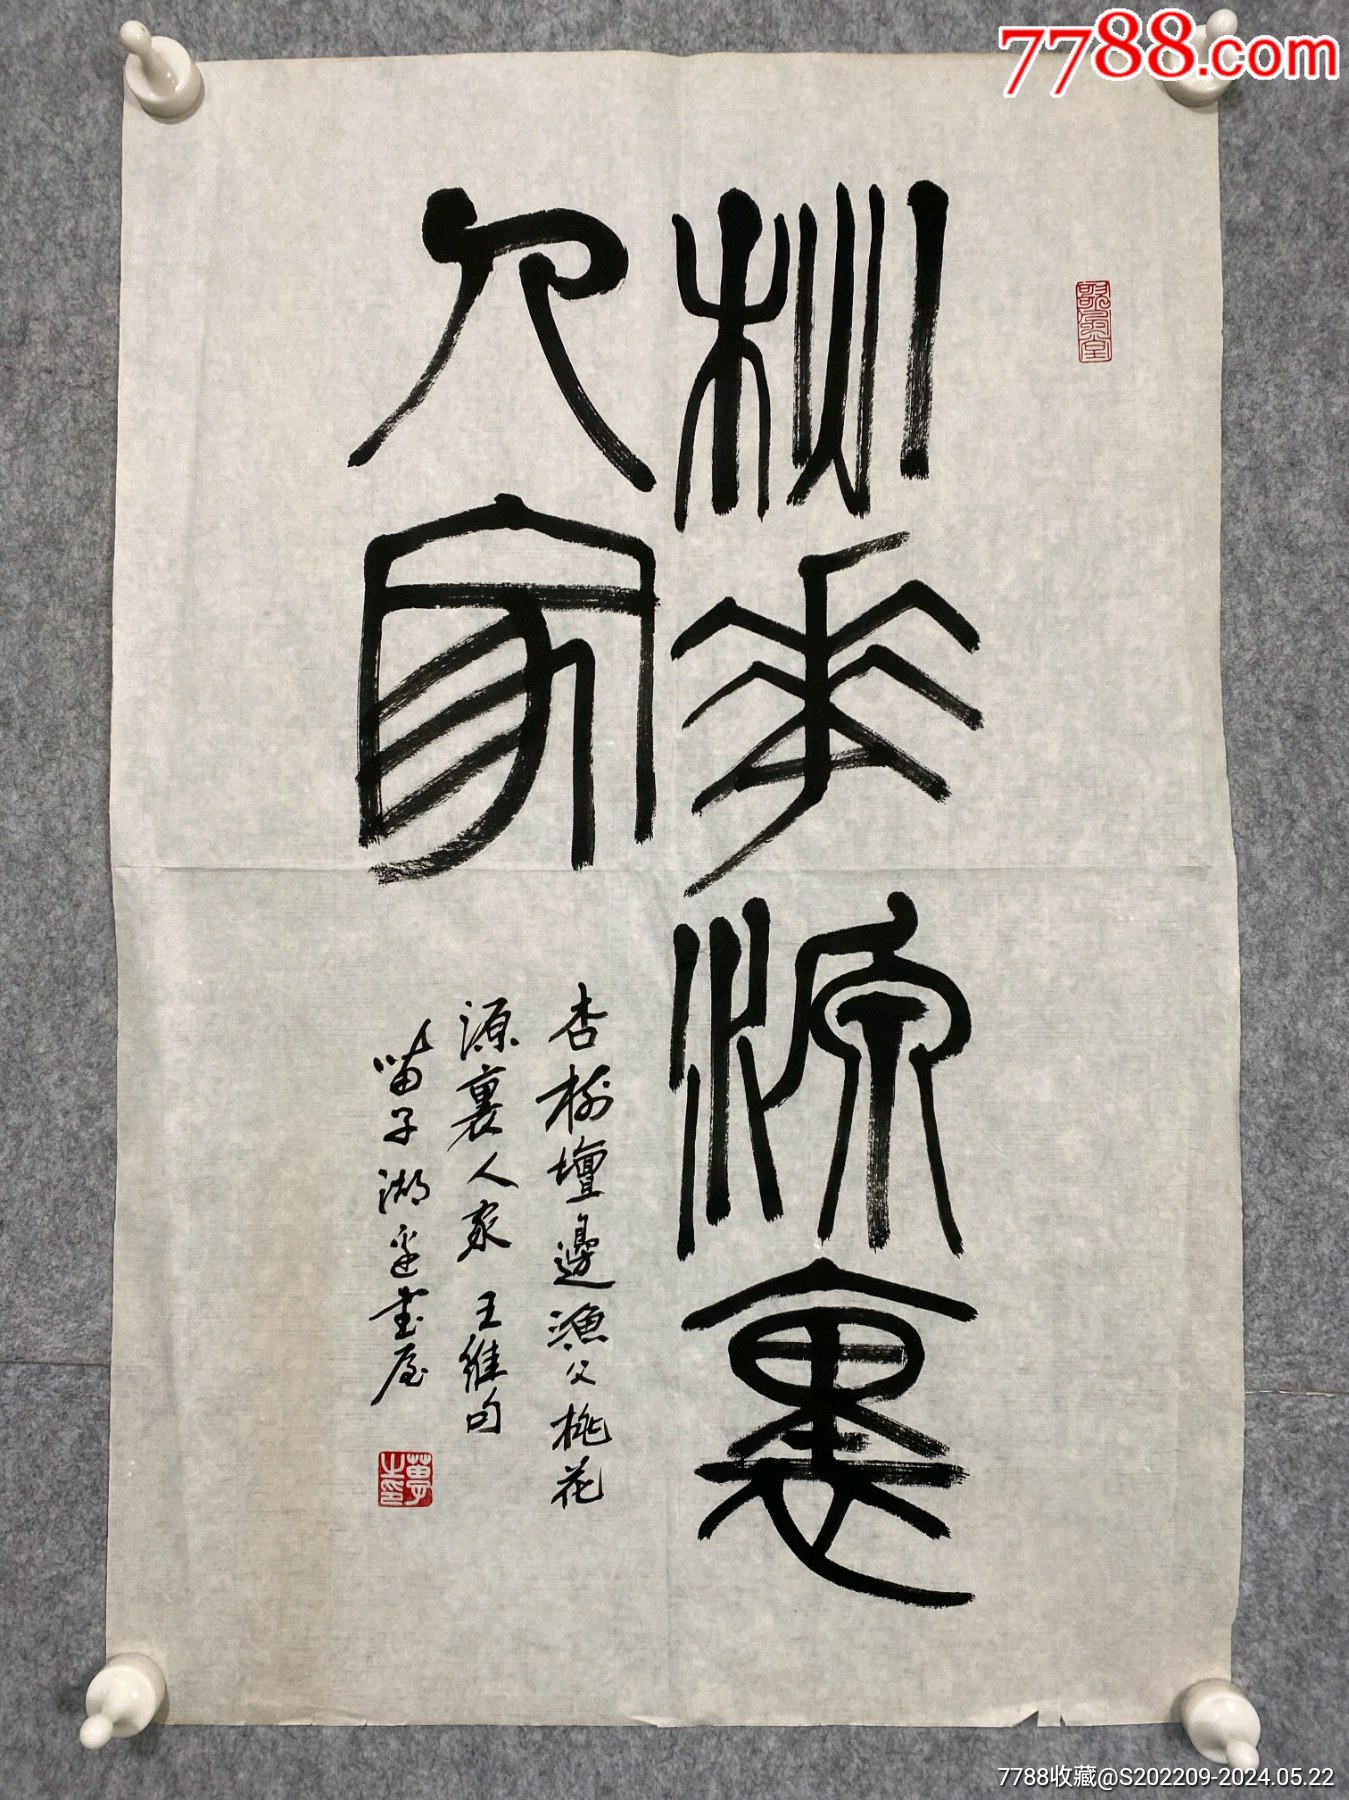 7788.com
桃華源裏
人家
杏樹壇邊漁父桃花
源裏人家 王維句
苗子湖
書屋
7788收藏@S202209-2024.05.22